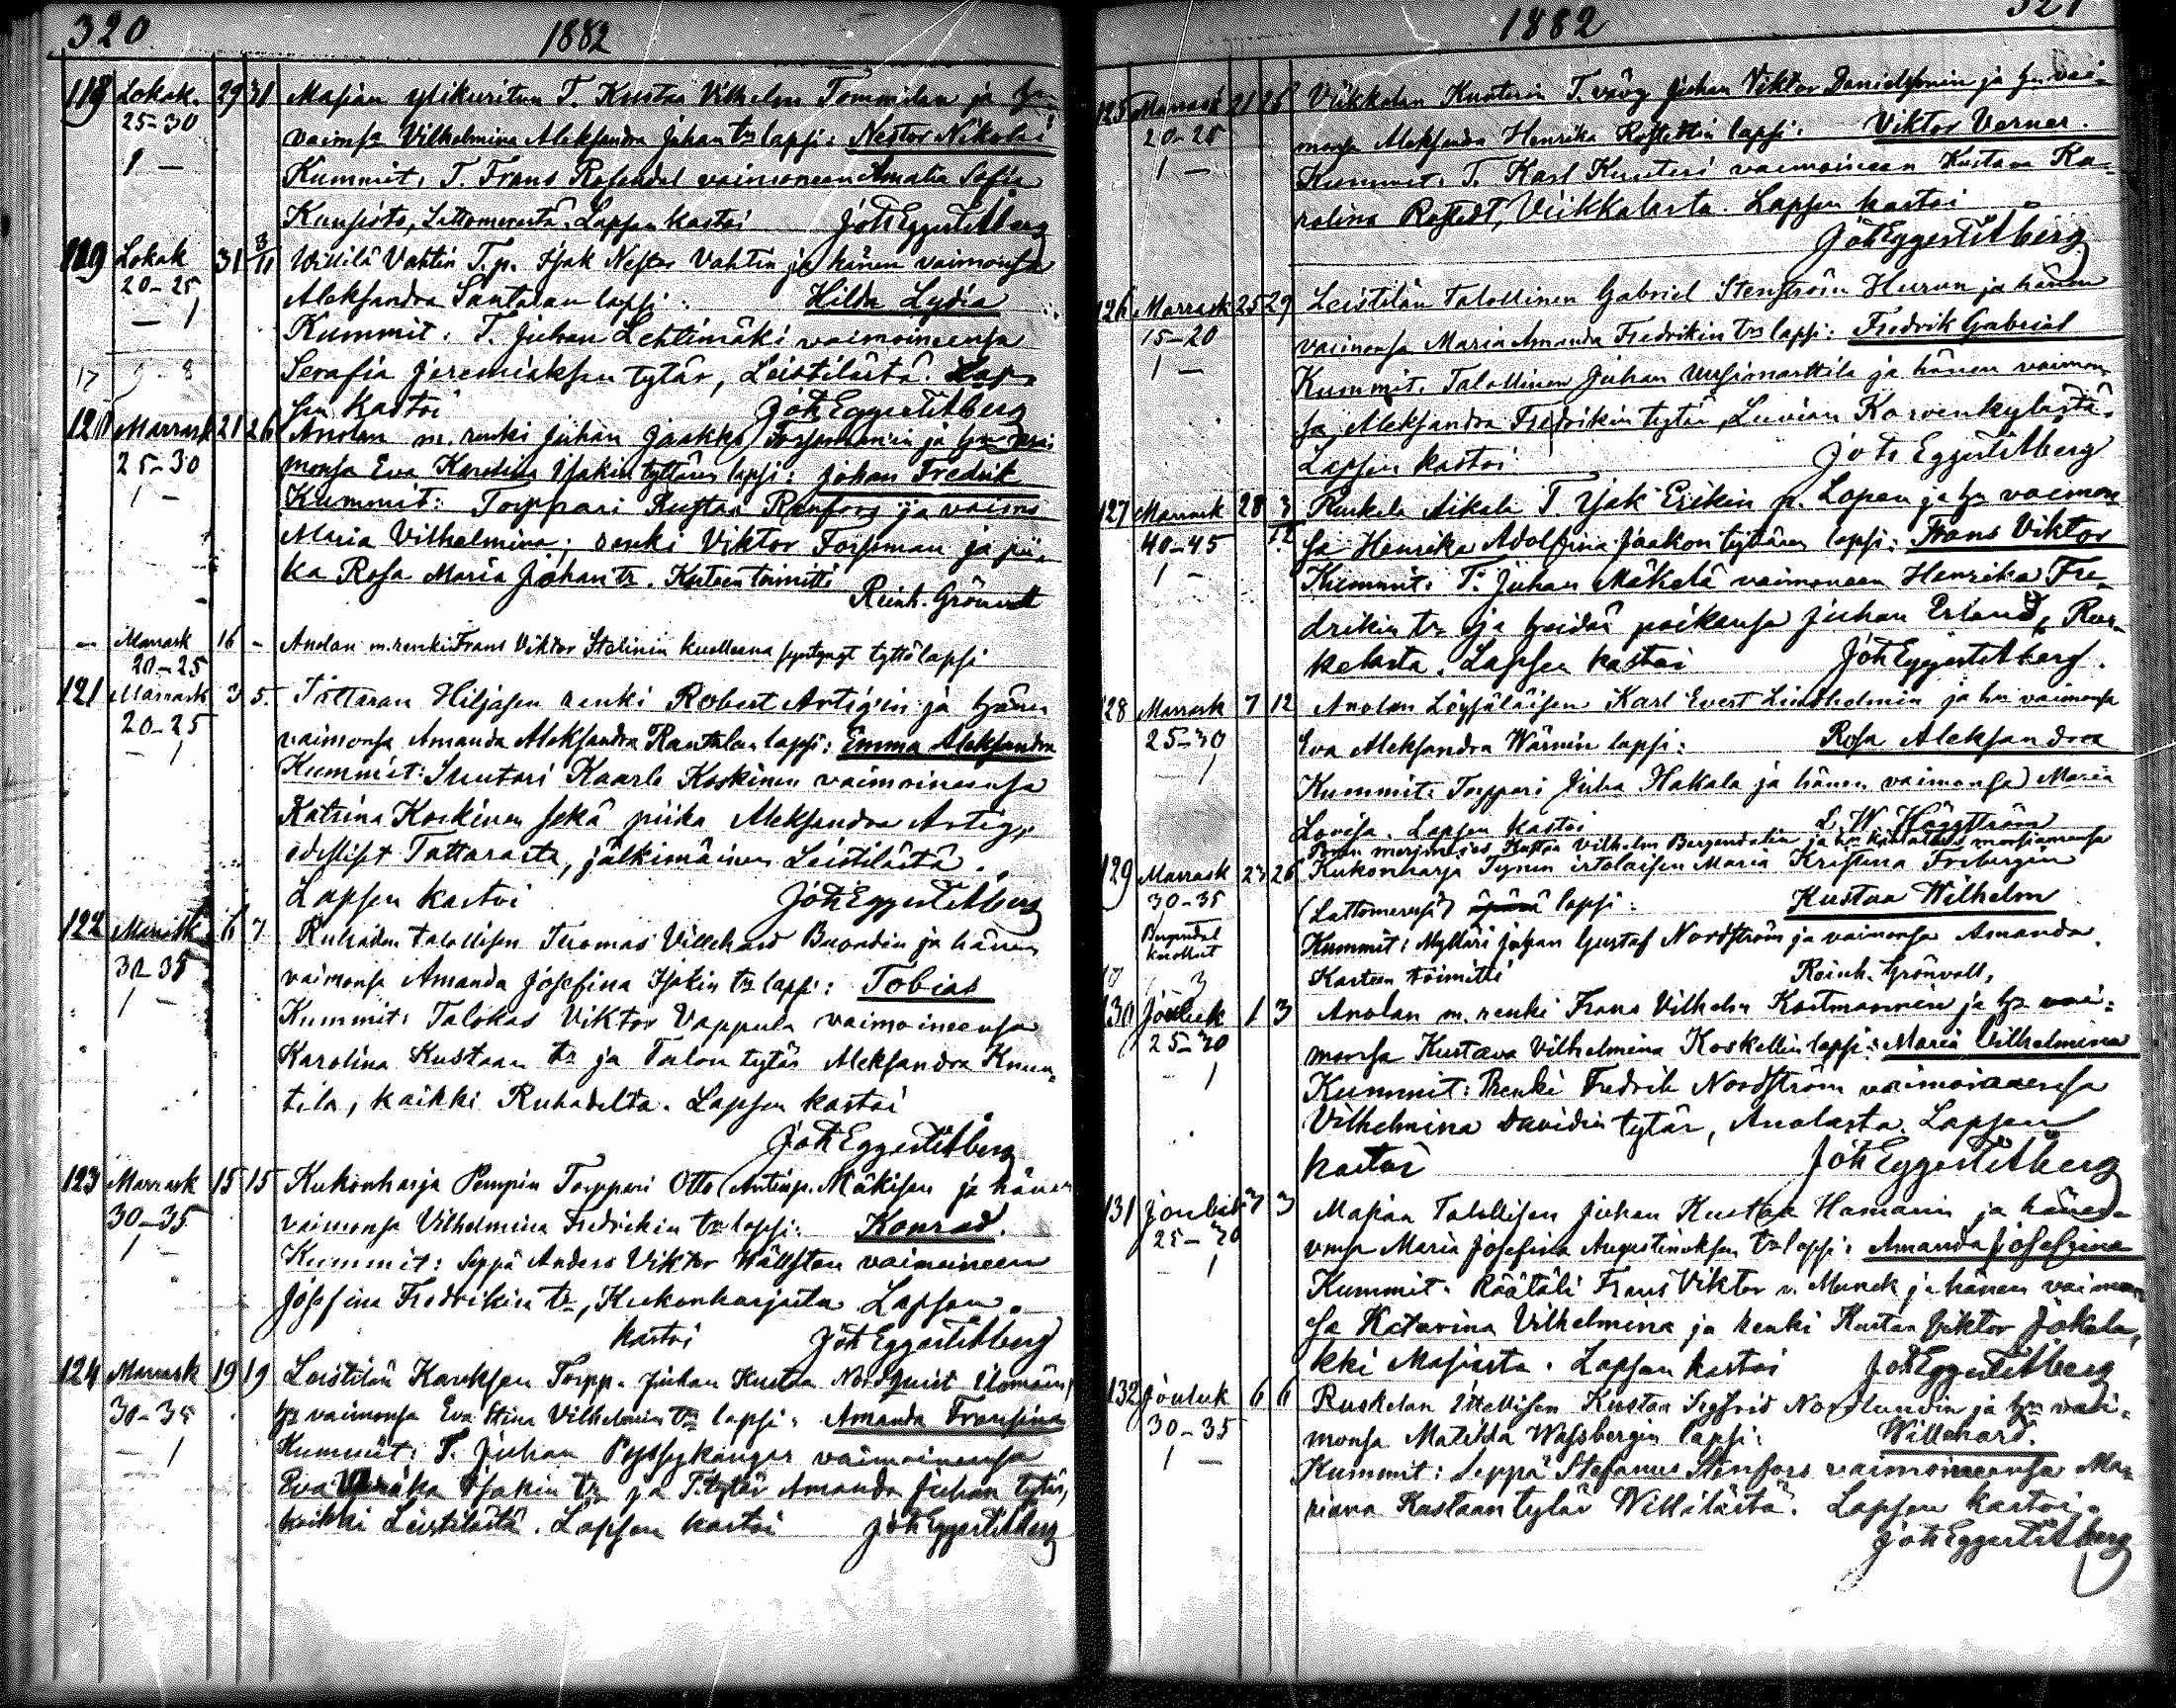 320 1882
118 Lokak. 29 31 Masian ylikuritun T. Kustaa Vilhelm Tommilan ja hn
25-30 vaimonsa Vilhelmina Aleksandra Juhan tr lapsi: Nestor Nikolai
1 — Kummit: T. Frans Rosendal vaimoneen Amalia Sofia
Lattomerestä. Lapsen kastoi Joh Eggert Itberg
119 Lokak 31 3/11 Willilä Vahtin T.p. Isak Nestor Vahtin ja hänen vaimonsa
20-25 Aleksandra Santalan lapsi: Hilda Lydia
— 1 Kummit: T. Juhan Lehtimäki vaimoineensa
17 8 Serafia Jeremiaksen tytär, Leistilästä. Lap-
sen kastoi Joh Eggert Itberg
120 Marrask 21 26 Anolan m. renki Juhan Jaakko Forsmanin ja hn vai-
25-30 monsa Eva Karolina Isakin tyttären lapsi: Johan Fredrik
1 — Kummit: Torppari Kustaa Renfors ja vaimo
Maria Vilhelmina; renki Viktor Forsman ja pii-
ka Rosa Maria Juhan tr. Kasteen toimitti
Reinh. Grönvall
— Marrask 16 - Anolan m. renki Frans Viktor Stalinin kuolleena syntynyt tyttölapsi
20-25
121 Marrask 3 5. Tattaran Hiljasen renki Robert Artigin ja hänen
20-25 vaimonsa Amanda Aleksandra Rantalan lapsi: Emma Aleksandra
— 1 Kummit: Suutari Kaarle Koskinen vaimoineensa
Katrina Koskinen sekä piika Aleksandra Artig,
edelliset Tattarasta, jälkimäinen Leistilästä.
Lapsen kastoi Joh Eggert Itberg
122 Marrask 6 7 Ruhadan talollisen Tuomas Villehard Buondin ja hänen
30-35 vaimonsa Amanda Josefina Isakin tr lapsi: Tobias
1 — Kummit: Talokas Viktor Vappula vaimoineensa
Karolina Kustaan tr ja Talon tytär Aleksandra Knuu-
tila, kaikki Ruhadelta. Lapsen kastoi
Joh Eggert Itberg
123 Marrask 15 15 Kukonharja Pempin Torppari Otto Antinp. Mäkisen ja hänen
30-35 vaimonsa Vilhelmina Fredrikin tr lapsi: Konrad.
1 — Kummit: Seppä Anders Viktor Hällsten vaimoineen
Josefina Fredrikin tr, Kukonharjasta Lapsen
kastoi Joh Eggert Itberg
124 Marrask 19 19 Leistilän Kareksen Torpp. Juhan Kustaa Nordqvist Ilomäen,
30-35 hn vaimonsa Eva Stina Vilhelmin tr lapsi: Amanda Fransina
— 1 Kummit: T. Juhan Pyssykangas vaimoineensa
Eva Isakin tr ja T. tytär Amanda Juhan tytär,
kaikki Leistilästä. Lapsen kastoi Joh Eggert Itberg
1882 321
125 Marrask 21 26 Viikkalan Knuterin T. vävy Juhan Viktor Danielsonin ja hn vai-
20-25 monsa Aleksandra Henrika Rostedtin lapsi: Viktor Verner.
1 — Kummit: T. Karl Knuteri vaimoineen Kustava Ka-
rolina Rostedt, Viikkalasta. Lapsen kastoi
Joh Eggert Itberg
126 Marrask 25 29 Leistilän Talollinen Gabriel Stenström Hurun ja hänen
15-20 vaimonsa Maria Amanda Fredrikin tr lapsi: Fredrik Gabriel
1 — Kummit: Talollinen Juhan Uusimarttila ja hänen vaimon-
sa, Aleksandra Fredrikin tytär, Luvian Korvenkylästä.
Lapsen kastoi Joh Eggert Itberg
127 Marrask 28 3/12 Ruskela Aikala T. Isak Erikin p. Lopen ja hn vaimon-
40-45 sa Henrika Adolfina Jaakon tyttären lapsi: Frans Viktor
1 — Kummit: T. Juhan Mäkelä vaimoneen Henrika Fre-
drikin tr ja heidän poikansa Juhan Erland, Rus-
kelasta. Lapsen kastoi Joh Eggert Itberg.
128 Marrask 7 12 Anolan Löysäläisen Karl Evert Lindholmin ja hn vaimonsa
25-30 Eva Aleksandra Wärnin lapsi: Rosa Aleksandra
— 1 Kummit: Torppari Juha Hakala ja hänen vaimonsa Maria
Lovisa. Lapsen kastoi L. W. Häggström
Porin merimiehes Kustaa Vilhelm Bergendalin ja hn kihlatun morsiamensa
129 Marrask 23 26 Kukonharja Tynin irtolaisen Maria Kristina Fribergin
30-35 (Lattomeressä) äpärä lapsi: Kustaa Wilhelm
Bergendal kuollut Kummit: Mylläri Johan Gustaf Nordström ja vaimonsa Amanda.
17 3 Kasteen toimitti Reinh. Grönvall,
130 Jouluk 1 3 Anolan m. renki Frans Vilhelm Kortmannin ja hn vai-
25-30 monsa Kustava Vilhelmina Koskellin lapsi: Maria Vilhelmina
— 1 Kummit: Renki Fredrik Nordström vaimoineensa
Vilhelmina Davidin tytär, Anolasta. Lapsen
kastoi Joh Eggert Itberg
131 Jouluk 3 3 Masian Talollisen Juhan Kustaa Hamarin ja hänen
25-30 vmsa Maria Josefina Augustinuksen tr lapsi: Amanda Josefina
— 1 Kummit: Räätäli Frans Viktor v. Munck ja hänen vaimon-
sa Katarina Vilhelmina ja renki Kustaa Viktor Jokela,
kki Masiasta. Lapsen kastoi Joh Eggert Itberg
132 Jouluk 6 6 Ruskelan Itsellisen Kustaa Sigfrid Nordlundin ja hn vai-
30-35 monsa Matilda Wassbergin lapsi: Willehard.
1 — Kummit: Seppä Stefanus Stenfors vaimoineensa Ma-
riana Kustaan tytär Willilästä. Lapsen kastoi
Joh Eggert Itberg